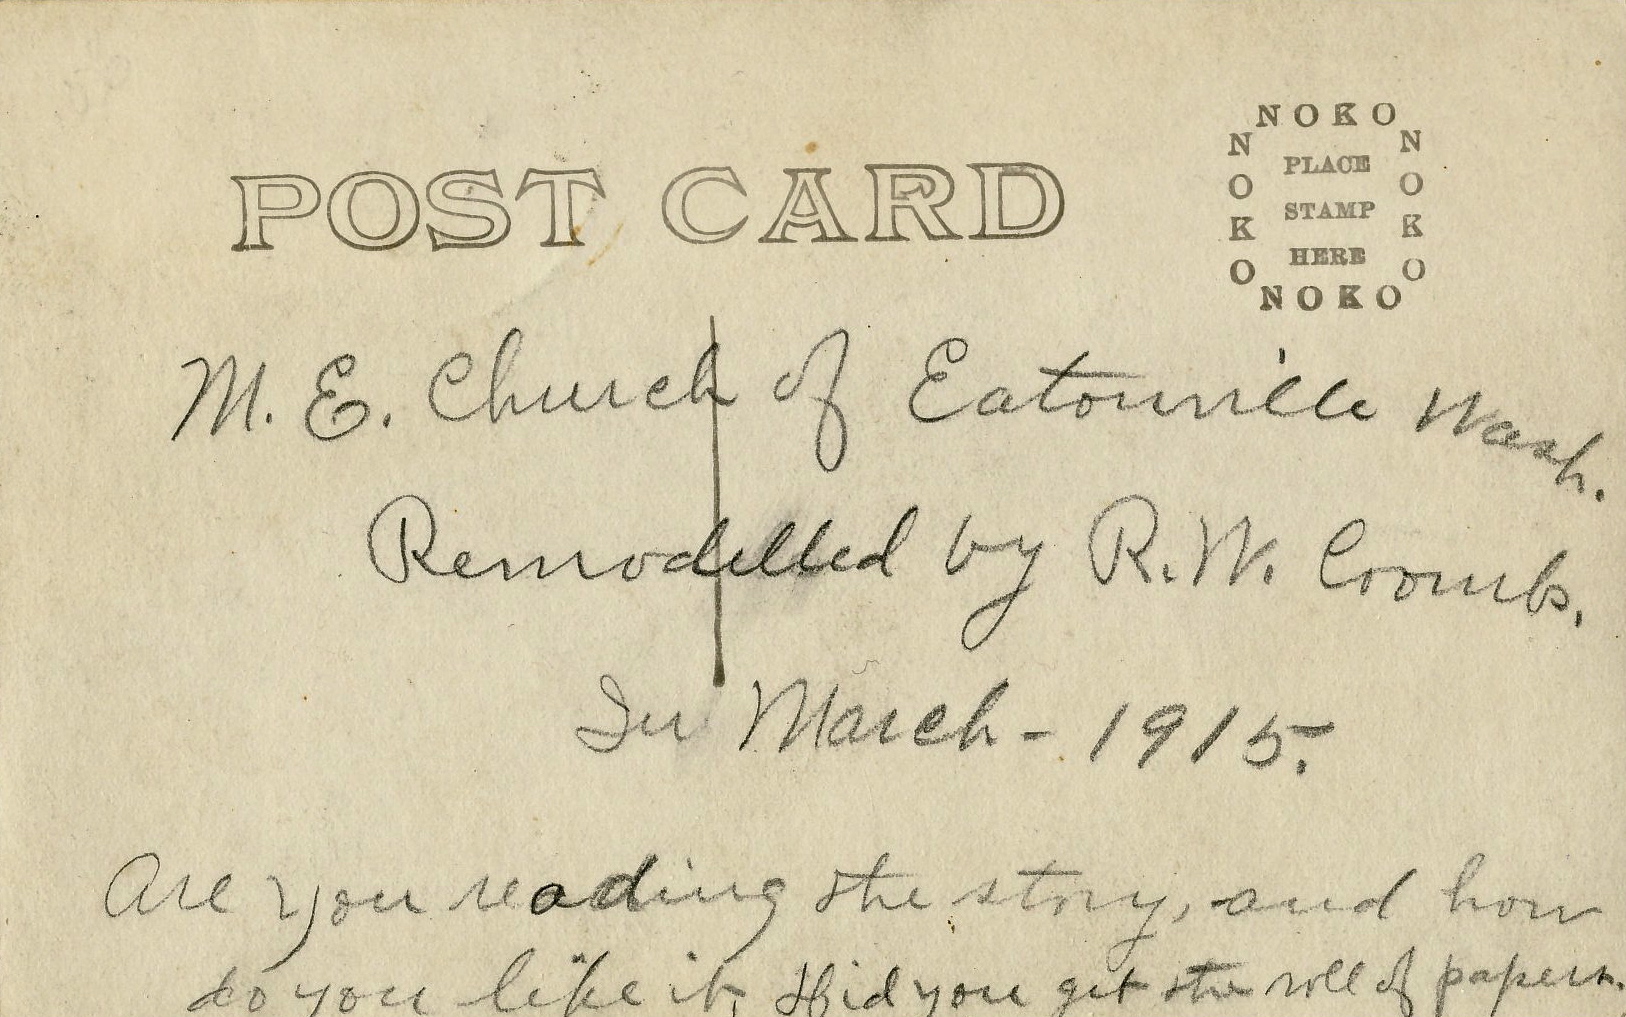 POST CARD
NOKO
NOKO
NOKO
NOKO
PLACE
STAMP
HERE
M. E. Church of Eatonville Wash.
Remodelled by R. W. Coombs.
In March - 1915.
Are you reading the story, and how
do you like it, did you get the roll of papers.